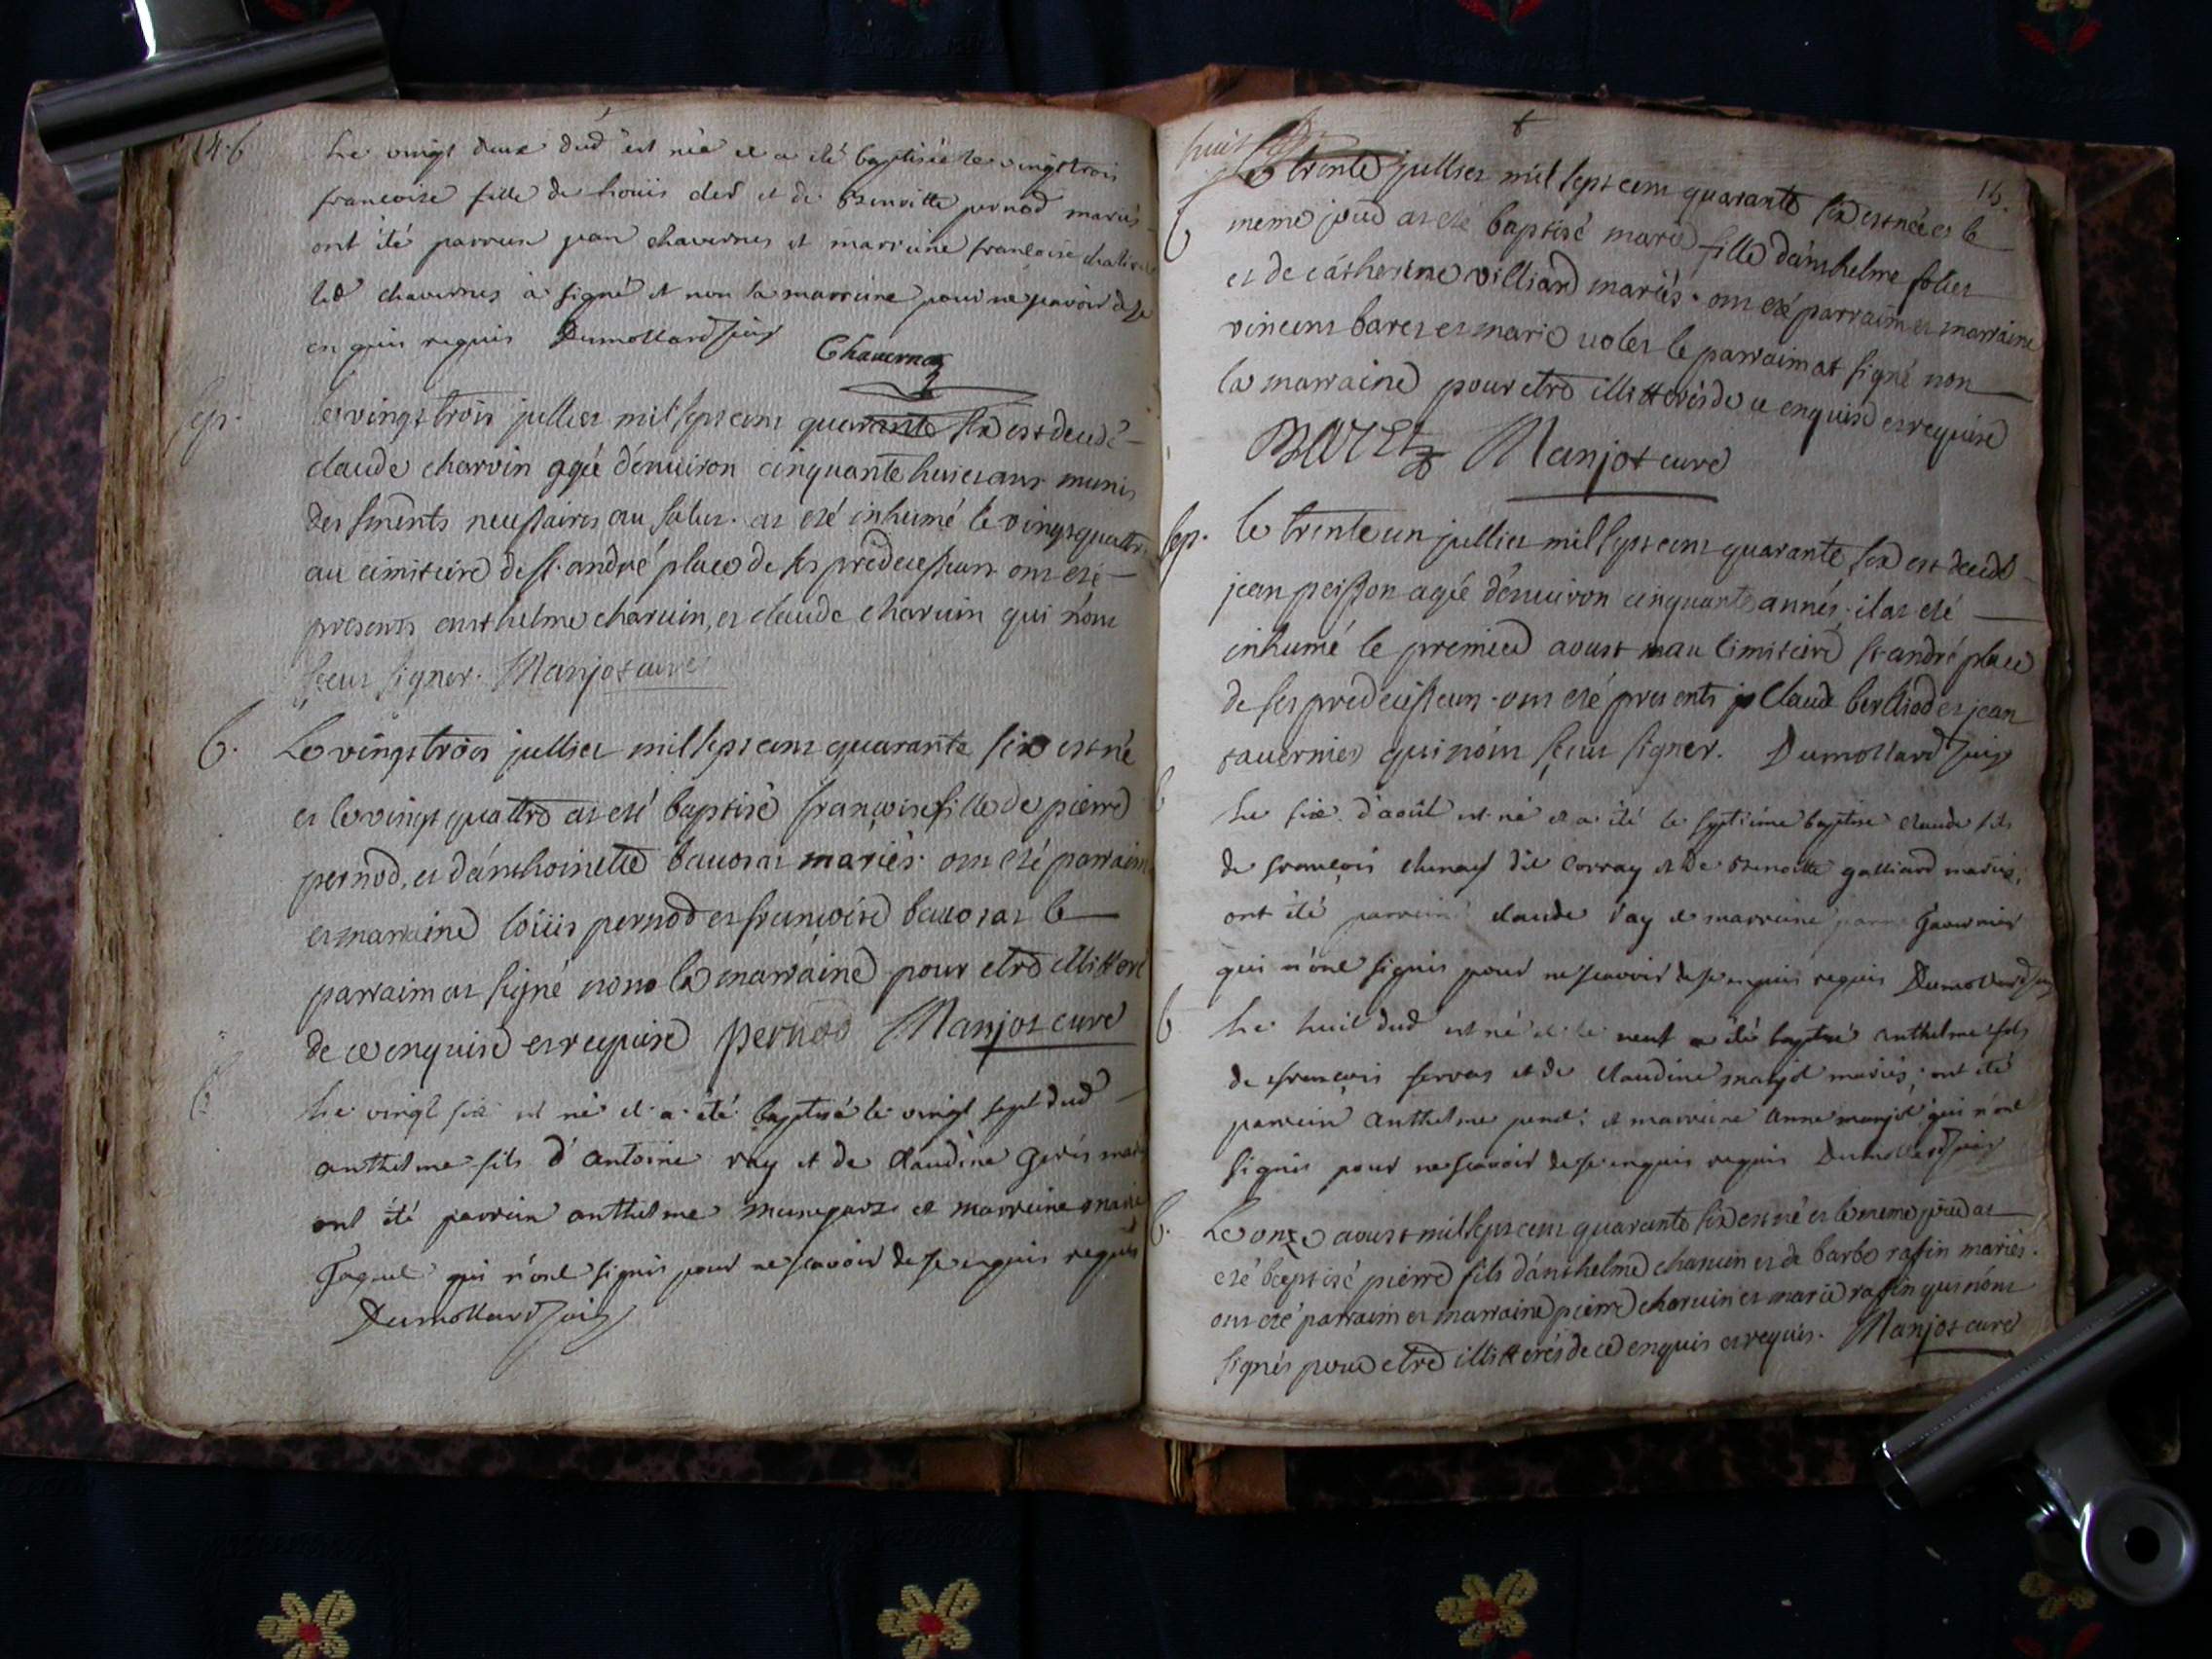 14. b
Le vingt deux dud est née et a été baptisée le vingt trois
francoise fille de louis der et de Benoitte pernod mariés
ont été parrein jean chavernes et marreine francoise
led chavernes à signé et non la marreine pour ne scavoir de ce
enquis requis Dumollard Chavernes
sep.
le vingt trois jullier mil sept cent quarante six est decedé
claude charvin agé d'enuiron cinquante huict ans munis
des sments necessaires au salut. at eté inhumé le vingt quattre
au cimiteire de st. andré place de ses predecesseurs ont eté
presents ansthelme charuin, et claude charuin qui n'ont
sceut signer. Manjot curé
b.
Le vingt trois jullier mil sept cent quarante six est né
et le vingt quattre at eté baptisé francoise fille de pierre
pernod, et d'anthoinette bauorat mariés ont eté parraim
et marraine loüis pernod et francoise bauorat le
parraim at signé non la marraine pour etre illitteré
de ce enquise et requise pernod Manjot curé
b.
Le vingt six est né et a été baptisé le vingt sept dud
anthelme fils d'antoine ray et de Claudine
ont été parrein anthelme et marreine marie
qui n'ont signés pour ne scavoir de ce enquis requis
Dumollard
15.
b
Le trente jullier mil sept cent quarante six est née et le
meme jour at eté baptisé marie fille d'anthelme
et de catherine villiard mariés. ont eté parraim et marraine
vincent baret et marie le parraim at signé non
la marraine pour etre illitterés de ce enquise et requise
BARET Manjot curé
sep.
le trente un jullier mil sept cent quarante six est decedé
jean peisson agée d'enuiron cinquante annés. il at eté
inhumé le premier aoust au cimiteire st andré place
de ses predecesseurs. ont eté presents Claude berlliod et jean
tauernier qui n'ont sceut signer. Dumollard
b
Le six d'août est né et a été le septième baptisé claude fils
de françois chenaf dit Corray et de Benoitte galliard mariés,
ont été parrein claude ray et marreine
qui n'ont signés pour ne scavoir de ce enquis requis Dumollard
b
Le huit dud est né et le neuf a été baptisé anthelme fils
de francois et de claudine manjot mariés; ont été
parrein anthelme et marreine anne manjot qui n'ont
signés pour ne scavoir de ce enquis requis Dumollard
b.
Le onze aoust mil sept cent quarante six est né et le meme jour at
eté baptisé pierre fils d'anthelme charuin et de barbe raffin mariés.
ont eté parraim et marraine pierre charuin et marie raffin qui n'ont
signés pour etre illitterés de ce enquis et requis. Manjot curé